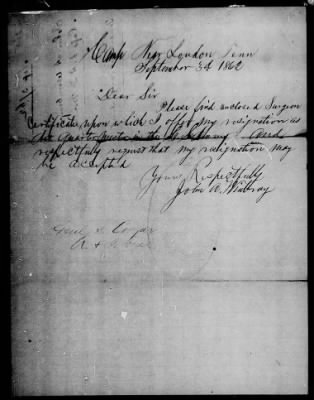 Camp Near Loudon Tenn
September 3d 1862
Dear Sir
Please find enclosed Surgeon
Certificate upon which I offer my resignation as
in the And
respectfully request that my resignation may
be accepted
Yours Respectfully
John A.